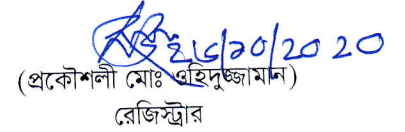 ২৬/১০/২০২০
(প্রকৌশলী মোঃ ওহিদুজ্জামান)
রেজিস্ট্রার